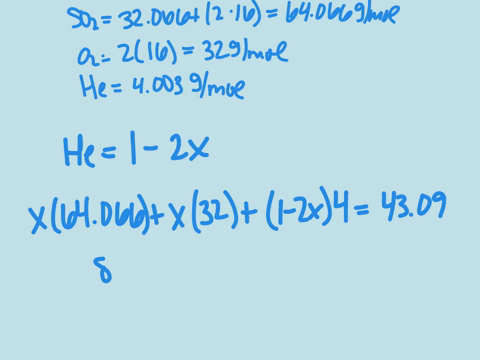 SO₂ = 32.066 + (2·16) = 64.066 g/mole
O₂ = 2(16) = 32 g/mole
He = 4.003 g/mole
He = 1 - 2x
x(64.066) + x(32) + (1-2x)4 = 43.09
8